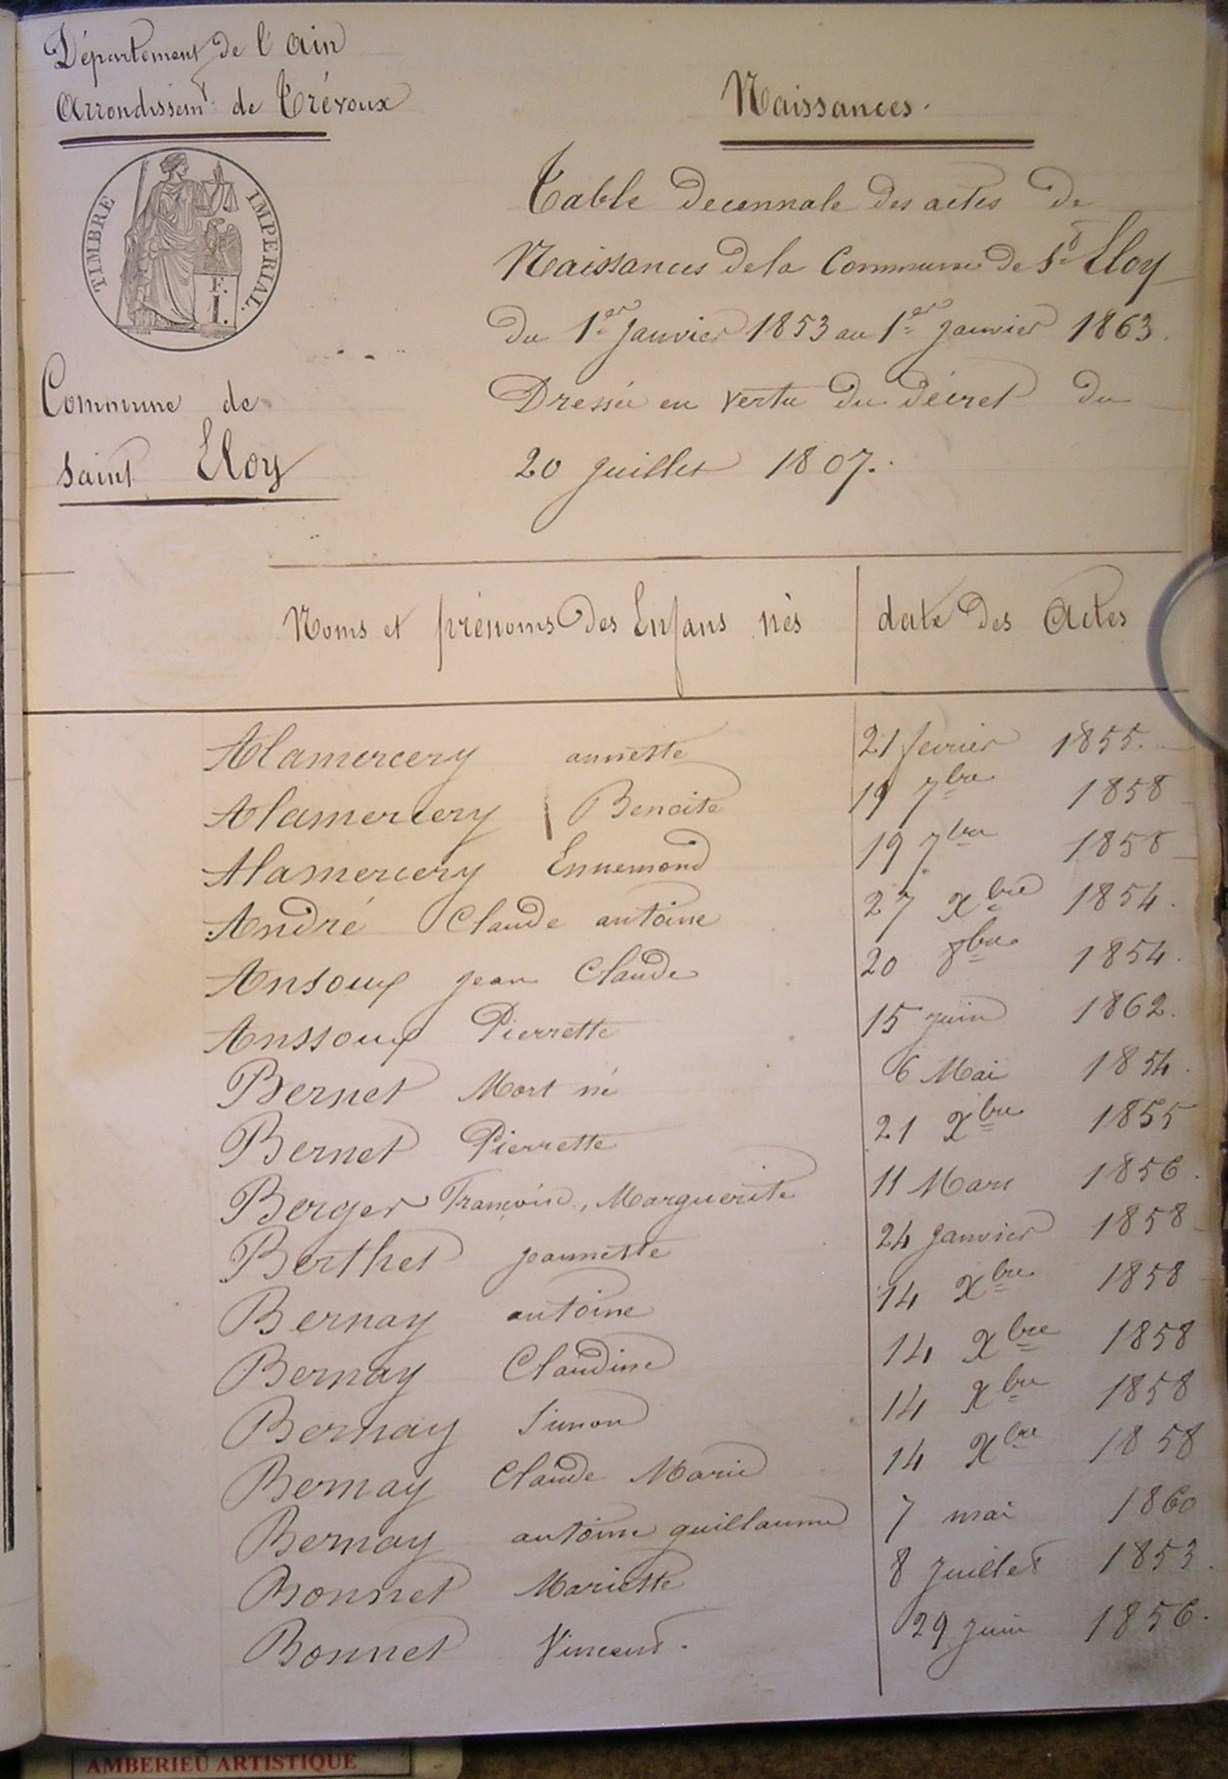 Département de l'Ain
Arrondissemt. de Trévoux
TIMBRE IMPERIAL.
F. 1.
Commune de
Saint Eloy
Naissances.
Table decennale des actes de
Naissances de la Commune de St Eloy
du 1er Janvier 1853 au 1er Janvier 1863.
Dressée en vertu du décret du
20 Juillet 1807.
Noms et prénoms des Enfans nés date des Actes
Alamercery annette 21 fevrier 1855.
Alamercery Benoite 19 7bre 1858
Alamercery Ennemond 19 7bre 1858
André Claude antoine 27 Xbre 1854.
Ansoux jean Claude 20 8bre 1854.
Anssoux Pierrette 15 juin 1862.
Bernet Mort né 6 Mai 1854.
Bernet Pierrette 21 Xbre 1855
Berger Francoise, Marguerite 11 Mars 1856.
Berthet jeannette 24 Janvier 1858
Bernay antoine 14 Xbre 1858
Bernay Claudine 14 Xbre 1858
Bernay Simon 14 Xbre 1858
Bernay Claude Marie 14 Xbre 1858
Bernay antoine guillaume 7 mai 1860
Bonnet Mariette 8 Juillet 1853.
Bonnet Vincent. 29 Juin 1856.
AMBERIEU ARTISTIQUE